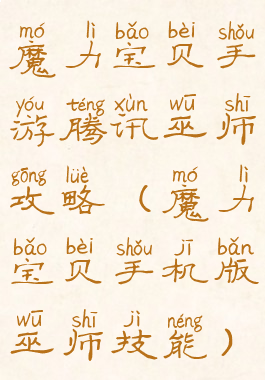 mó lì bǎo bèi shǒu
魔力宝贝手
yóu téng xùn wū shī
游腾讯巫师
gōng lüè mó lì
攻略（魔力
bǎo bèi shǒu jī bǎn
宝贝手机版
wū shī jì néng
巫师技能）